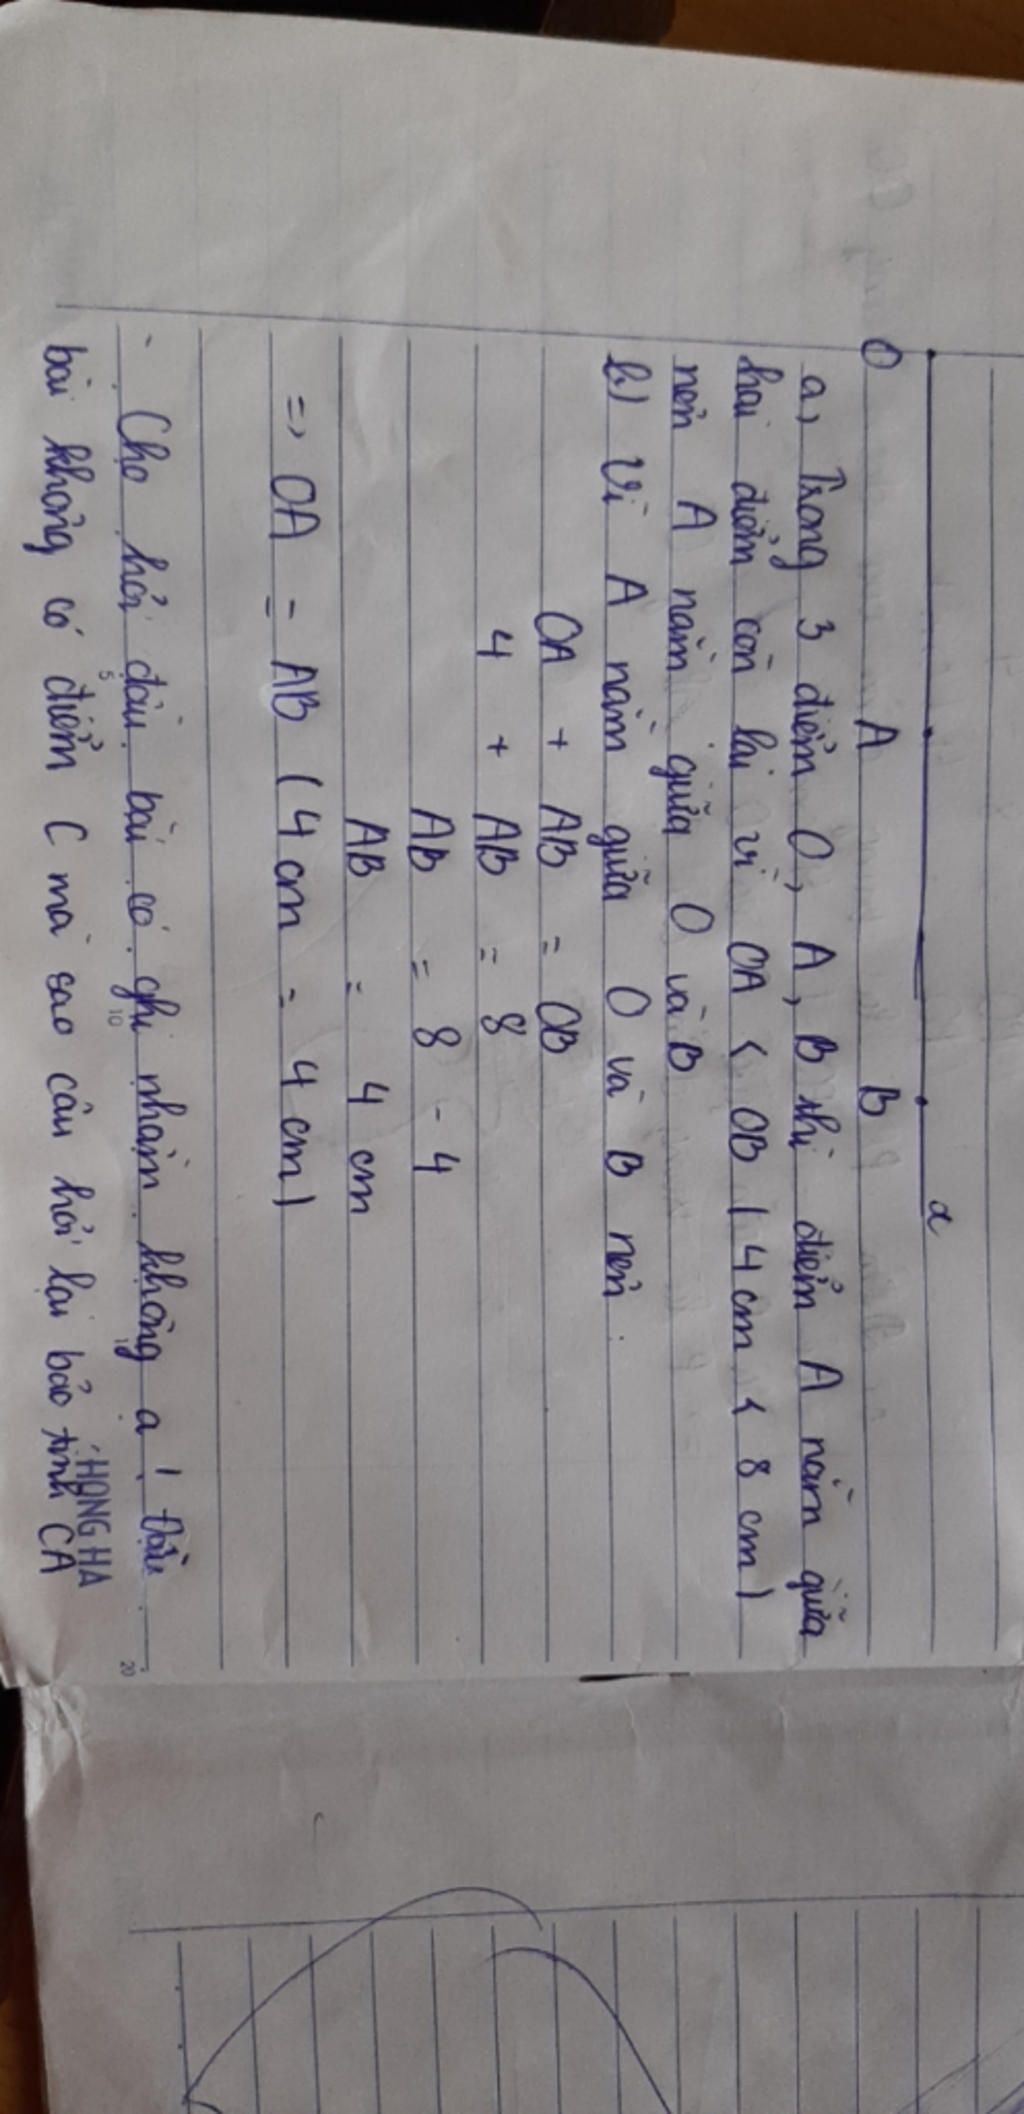 x
O A B
a, Trong 3 điểm O, A, B thì điểm A nằm giữa
hai điểm còn lại vì OA < OB ( 4 cm < 8 cm )
nên A nằm giữa O và B
b) Vì A nằm giữa O và B nên :
OA + AB = OB
4 + AB = 8
AB = 8 - 4
AB = 4 cm
=> OA = AB ( 4 cm = 4 cm )
- Cho hỏi đầu bài có ghi nhầm không ạ ! Đầu
HONG HA
bài không có điểm C mà sao câu hỏi lại bảo tính CA
5 10 15 20